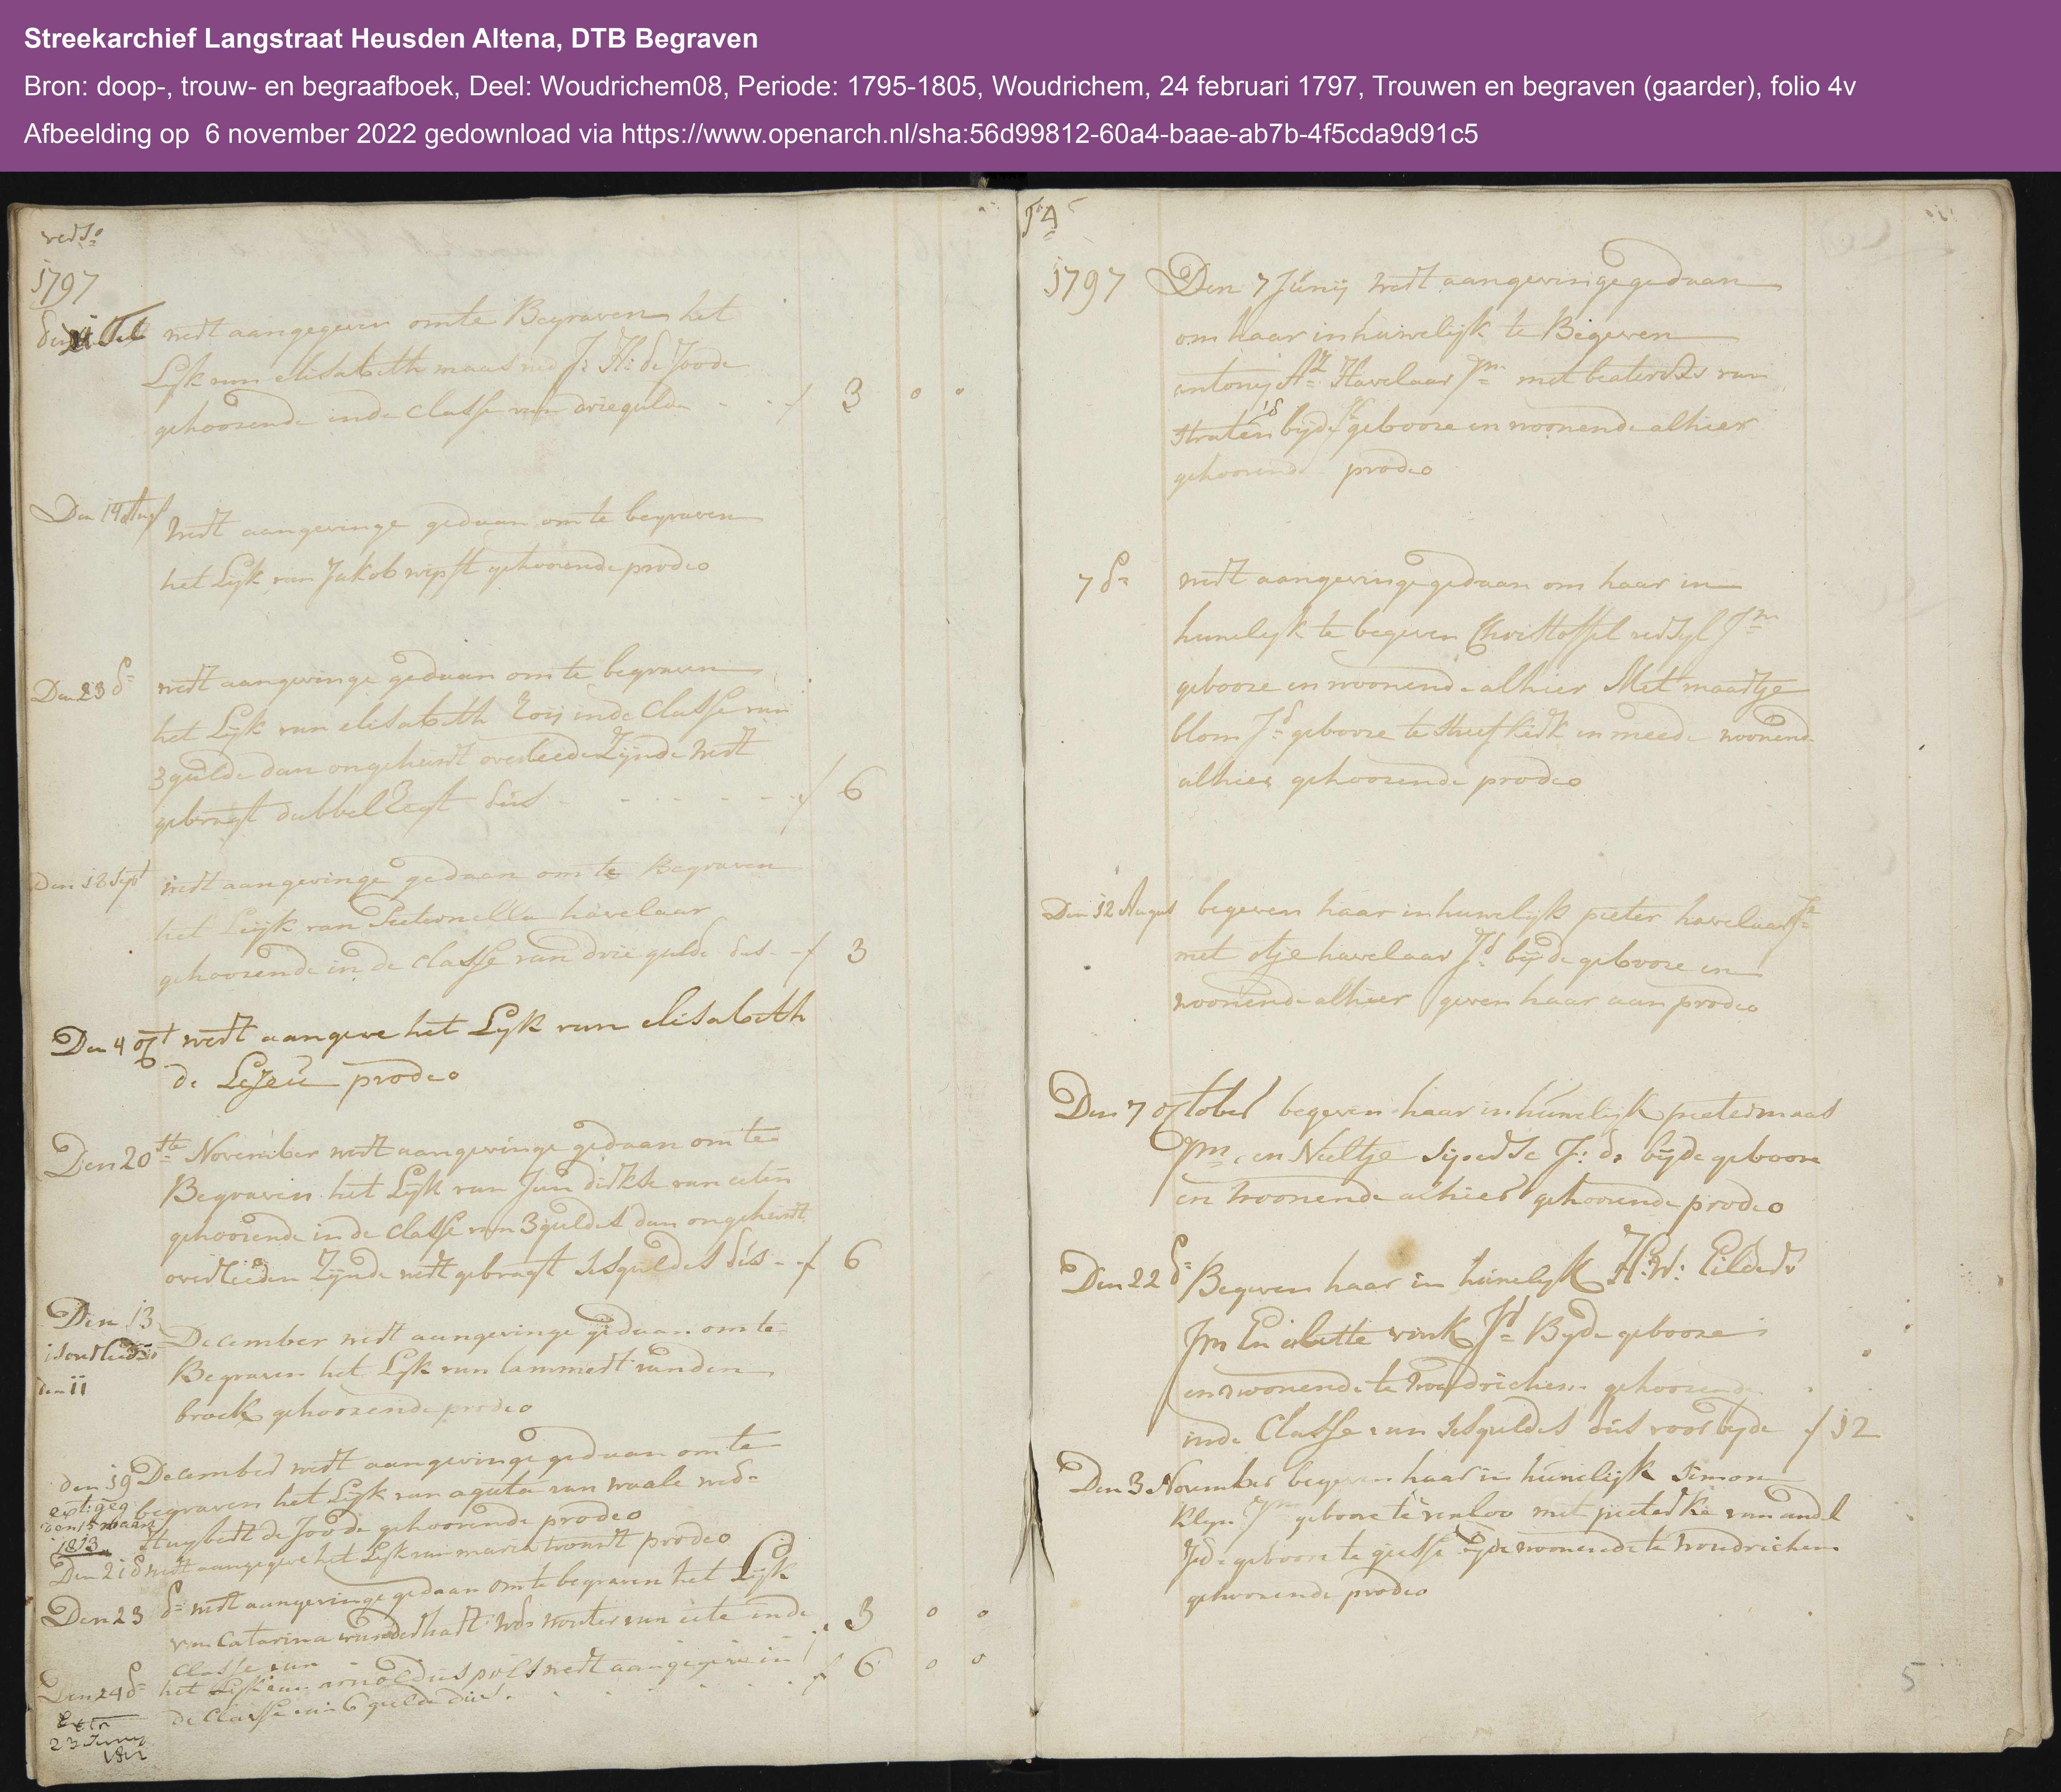 Streekarchief Langstraat Heusden Altena, DTB Begraven
Bron: doop-, trouw- en begraafboek, Deel: Woudrichem08, Periode: 1795-1805, Woudrichem, 24 februari 1797, Trouwen en begraven (gaarder), folio 4v
Afbeelding op 6 november 2022 gedownload via https://www.openarch.nl/sha:56d99812-60a4-baae-ab7b-4f5cda9d91c5
1797
werdt aangegeven om te Begraven het
Lijk van elisabeth maas wed J: H: de Joode
gehoorende inde Classe van drie gulde f 3 0 0
Den 14 Aug
werdt aangevinge gedaan om te begraven
het Lijk van Jakob wipst gehoorende prodeo
Den 23 d=
werdt aangevinge gedaan om te begraven
het Lijk van elisabeth inde Classe van
3 gulde dan ongehuwdt overleede Zijnde werdt
gebragt dubbel dus f 6
Den 18 Sept
werdt aangevinge gedaan om te Begraven
het Lijk van Pieternella havelaar
gehoorende in de classe van drie gulde dus f 3
Den 4 oct werdt aangeve het Lijk van elisabeth
de prodeo
Den 20ste November werdt aangevinge gedaan om te
Begraven het Lijk van Jan dirkse van
gehoorende in de classe van 3 guldes dan ongehuwdt
overleeden Zijnde werdt gebragt ses guldes dus f 6
Den 13
December werdt aangevinge gedaan om te
is overleede
Begraven het Lijk van lammert vanden
den 11
broek gehoorende prodeo
den 19 December werdt aangevinge gedaan om te
begraven het Lijk van agata van waale wed=
Huybert de Joode gehoorende prodeo
1813
Den 21 d werdt aangegeve het Lijk van maria prodeo
Den 23 d= werdt aangevinge gedaan om te begraven het Lijk
van Catarina wouter van inde
Classe van f 3 0 0
Den 24 d= het Lijk van arnoldus pols werdt aangegeve in
de Classe van 6 gulde dus f 6 0 0
Extr
23 Juny
1812
fo 4
1797 Den 7 Junij werdt aangevinge gedaan
om haar in huwelijk te Begeven
antonij Az Havelaar Jm met van
straten bijde geboore en woonende alhier
gehoorende prodeo
7 d= werdt aangevinge gedaan om haar in
huwelijk te begeven Christoffel Jm
geboore en woonende alhier Met maartje
blom Jd geboore te Streefkerk en meede woonende
alhier gehoorende prodeo
Den 12 August begeven haar in huwelijk pieter havelaar
met havelaar Jd bijde geboore en
woonende alhier geven haar aan prodeo
Den 7 october begeven haar in huwelijk pieter maas
Jm en Neeltje J: d: bijde geboore
en woonende alhier gehoorende prodeo
Den 22 d= Begeven haar in huwelijk H: W: Eilders
Jm En vink Jd Bijde geboore
en woonende te woudrichem gehoorende
inde Classe van ses guldes dus voor bijde f 12
Den 3 November begeven haar in huwelijk Simon
Jm geboore te venloo met pieterke van andel
Jd geboore te giesse bijde woonende te woudrichem
gehoorende prodeo
5